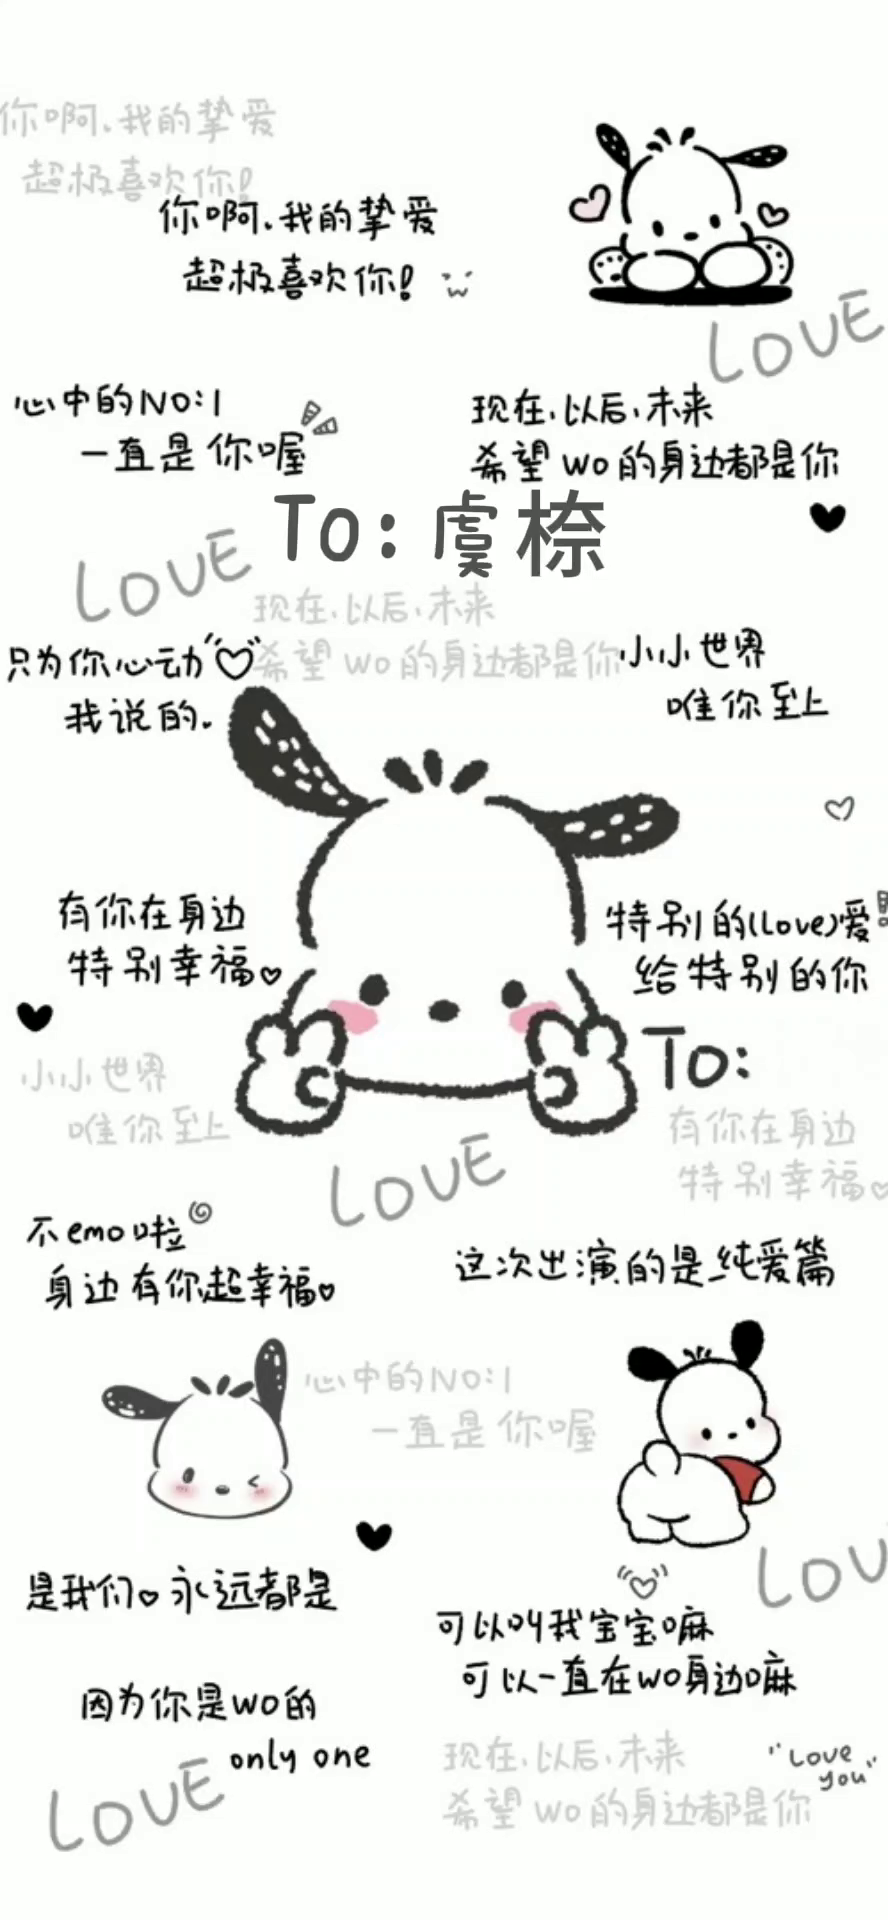 你啊、我的挚爱
超极喜欢你!
你啊、我的挚爱
超极喜欢你!
LOVE
心中的NO:1
一直是你喔
现在、以后、未来
希望wo的身边都是你
To: 虞㮈
LOVE
现在、以后、未来
希望wo的身边都是你
只为你心动
我说的.
小小世界
唯你至上
有你在身边
特别幸福
特别的(love)爱
给特别的你
To:
小小世界
唯你至上
有你在身边
特别幸福
LOVE
不emo啦
身边有你超幸福
这次出演的是纯爱篇
心中的NO:1
一直是你喔
LOV
是我们 永远都是
可以叫我宝宝嘛
可以一直在wo身边嘛
因为你是wo的
only one
现在、以后、未来
希望wo的身边都是你
"Love
you"
LOVE